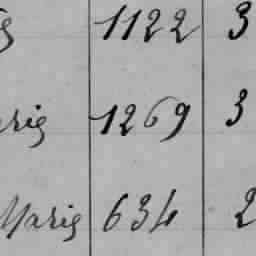 1122 3
aris 1269 3
Maris 634 2